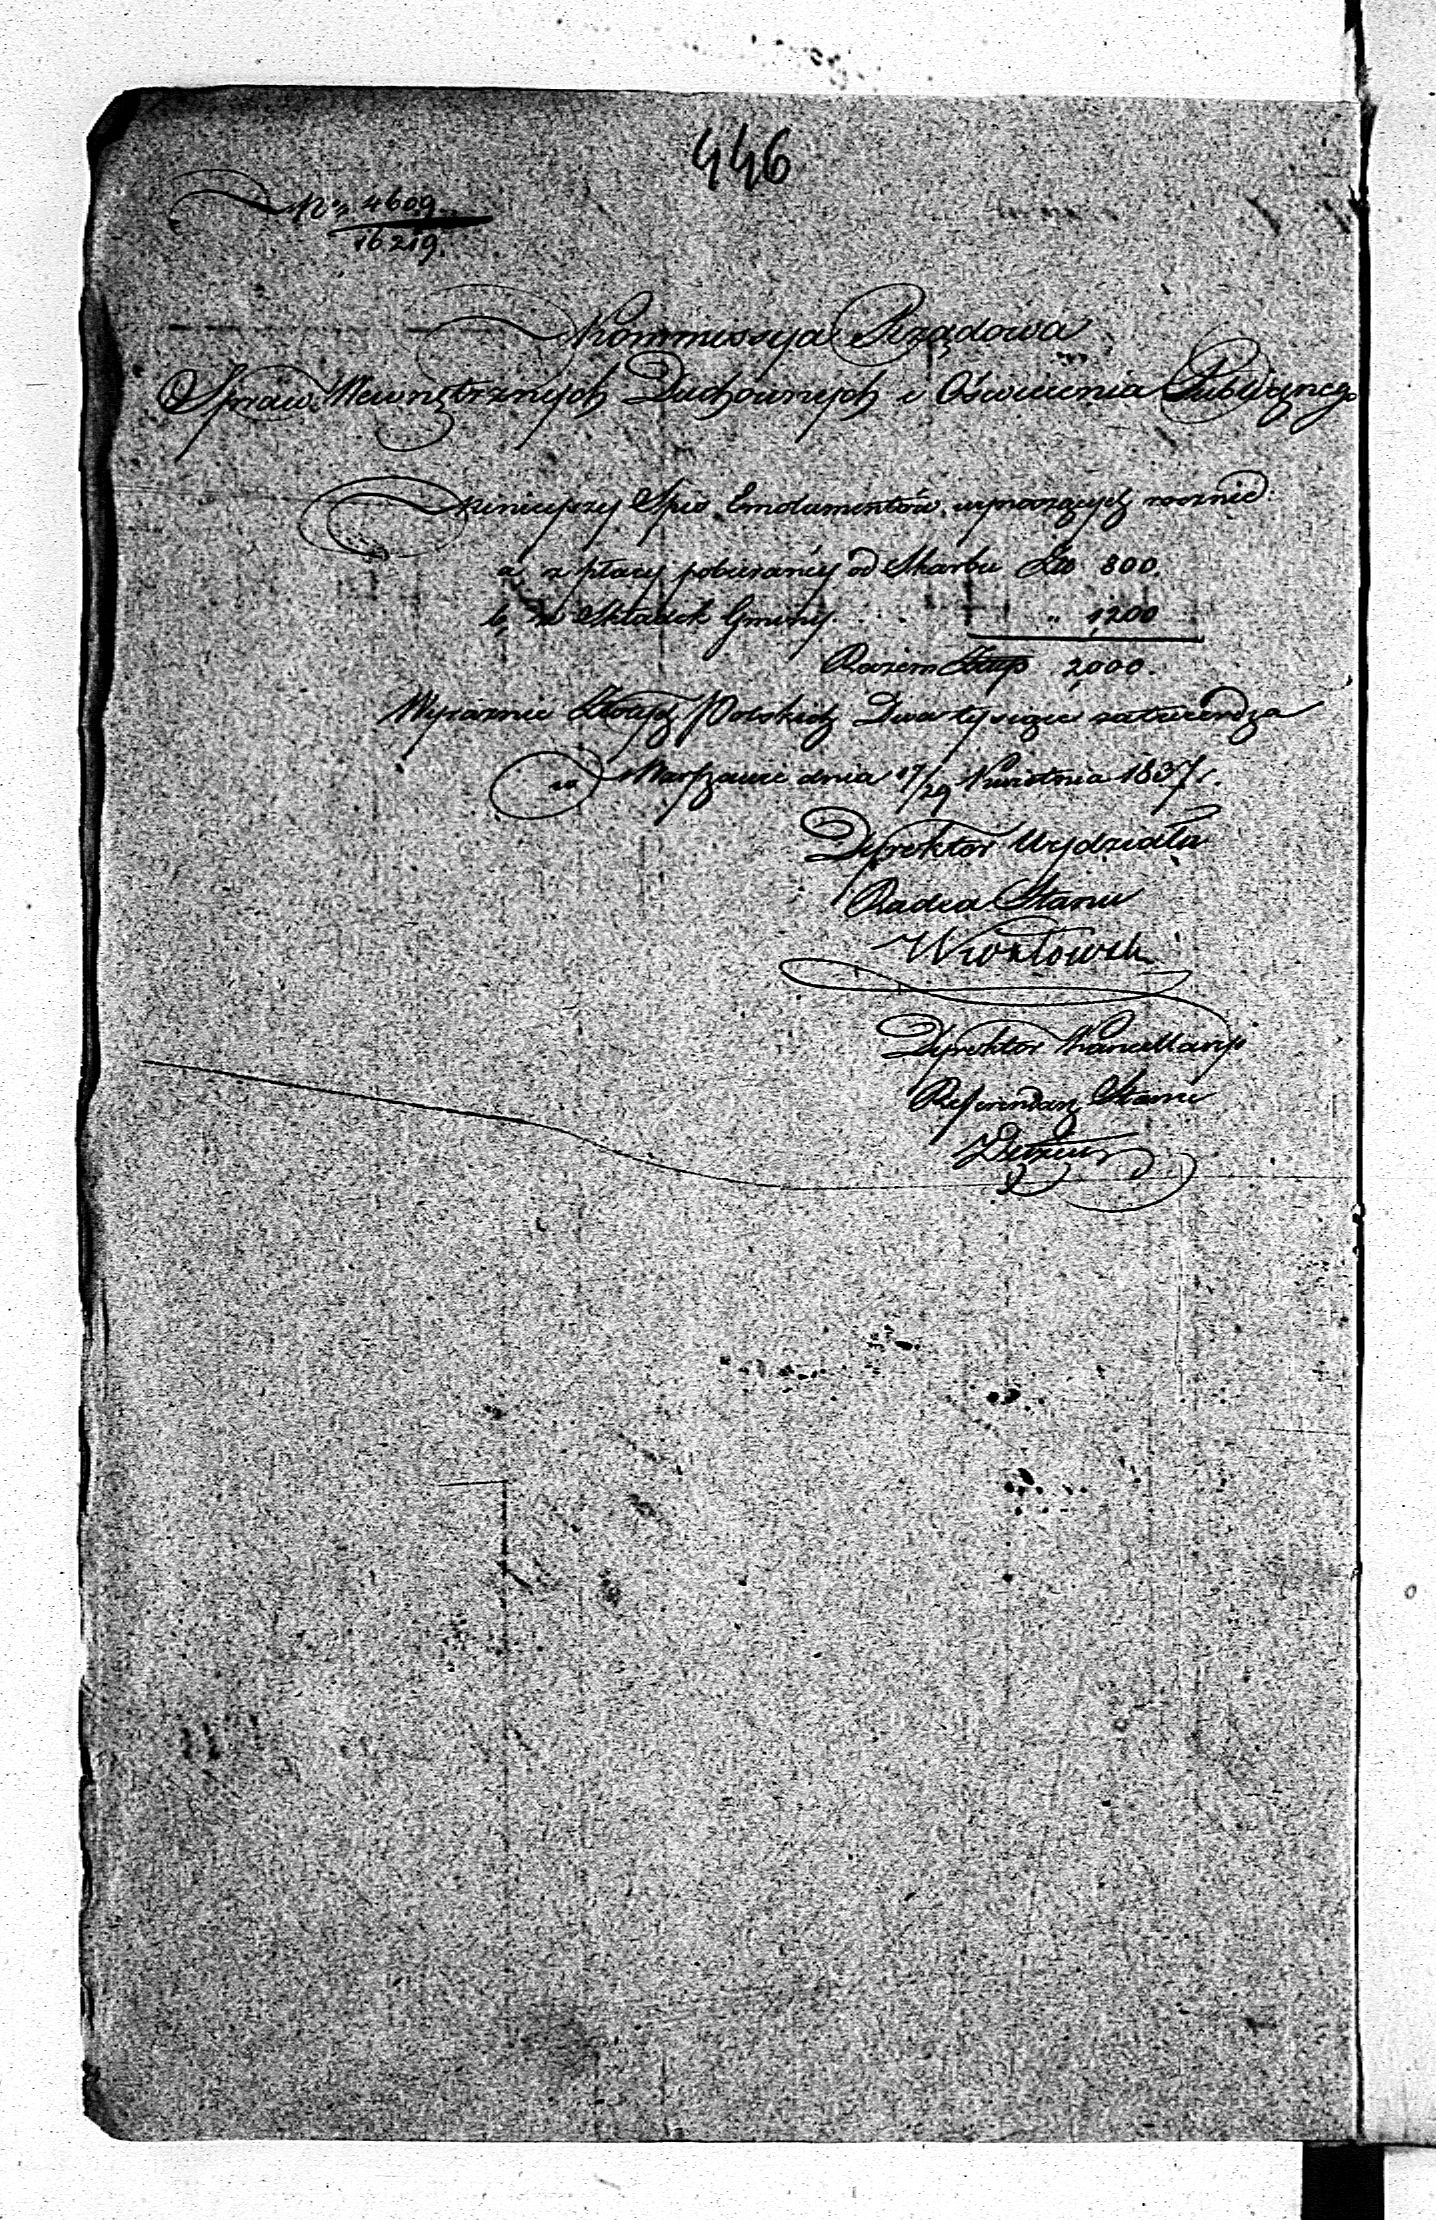 446
Nro 4609
16219.
Kommissya Rządowa
Spraw Wewnętrznych Duchownych i Oświecenia Publicznego
Ninieyszy Spis Emolumentów wynoszących rocznie:
a, z płacy pobieraney od Skarbu Złp 800.
b, ze Składek Gminy . . . " 1,200
Razem Złtp 2,000.
Wyraznie Złotych Polskich Dwa tysiące zatwierdza
w Warszawie dnia 17/29 Kwietnia 1837 r.
Dyrektor Wydziału
Radca Stanu
Dyrektor Kancellaryi
Referendarz Stanu